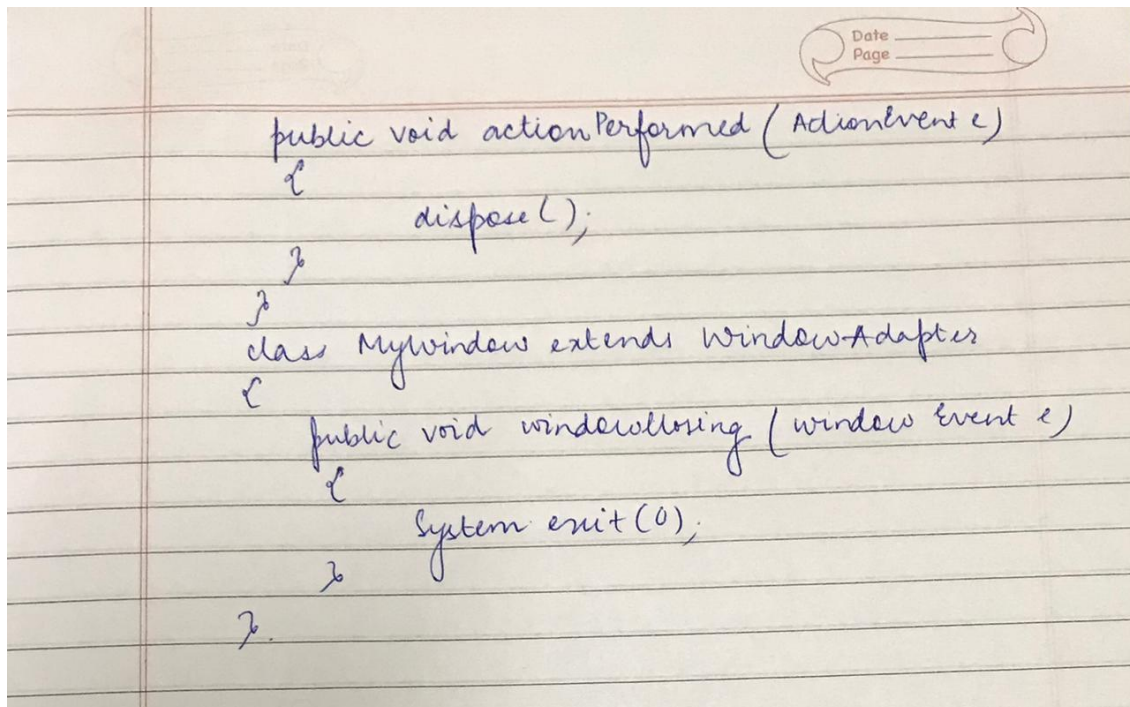 Date
Page
public void actionPerformed (ActionEvent e)
{
dispose();
}
}
class MyWindow extends WindowAdapter
{
public void windowClosing (window Event e)
{
System exit(0);
}
}.